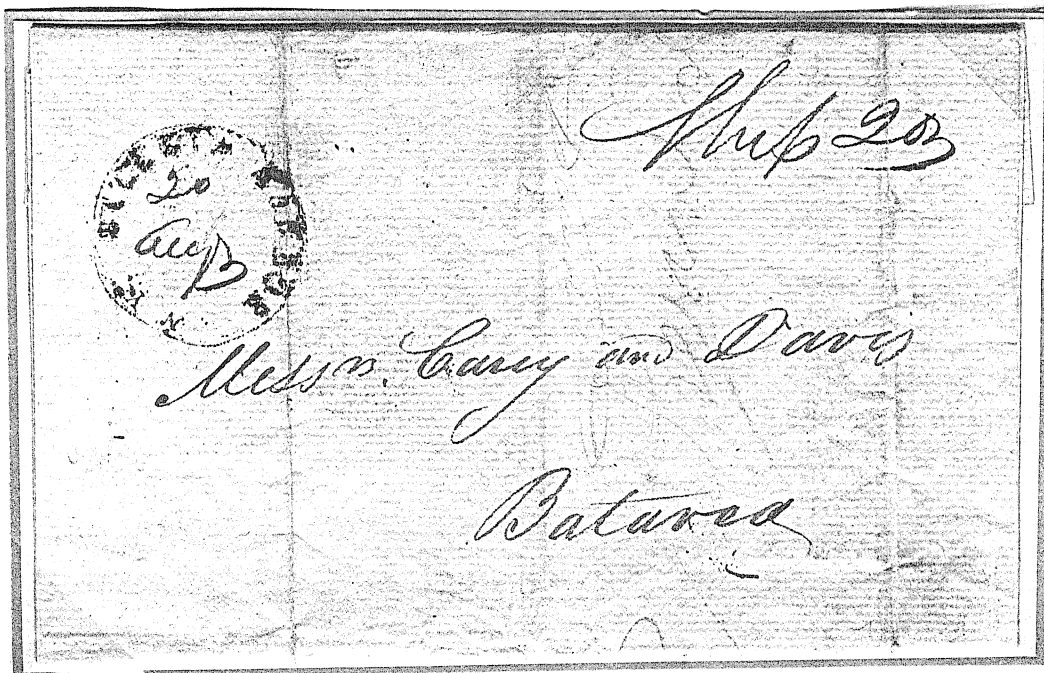 Ship 20
20
Aug
Messrs. Cary and Davis
Batavia